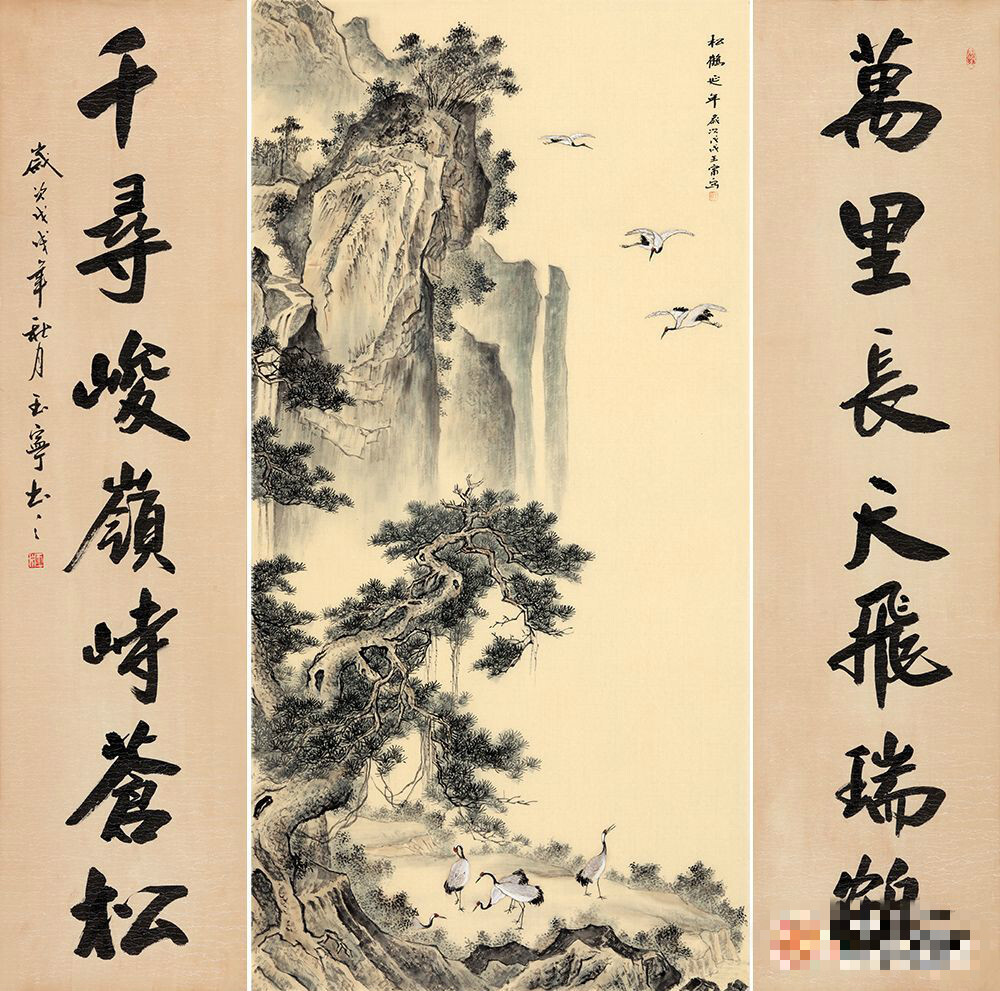 萬里長天飛瑞鶴
松鶴延年歲次戊戌
千尋峻嶺峙蒼松
歲次戊戌年秋月玉寧书之